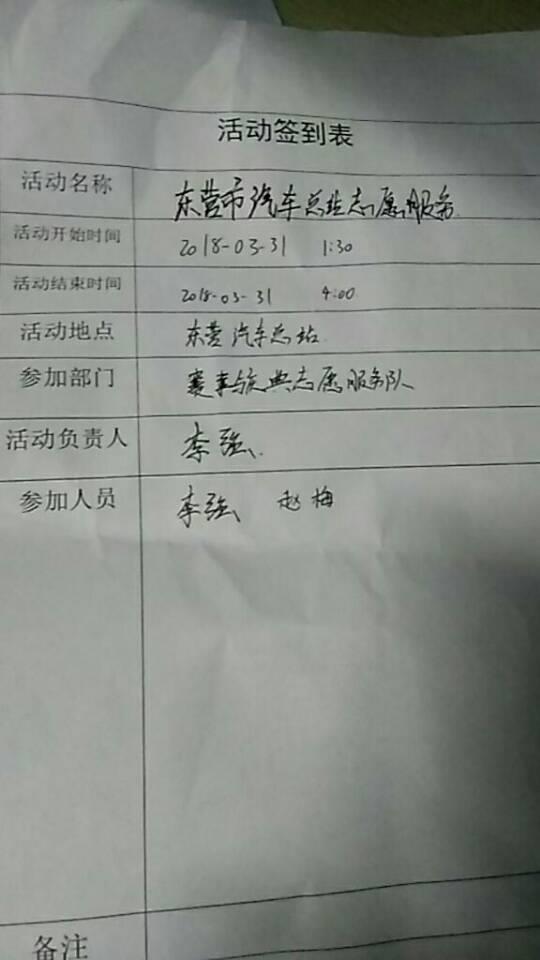 活动签到表
活动名称 东营市汽车总站志愿服务
活动开始时间 2018-03-31 1:30
活动结束时间 2018-03-31 4:00
活动地点 东营汽车总站
参加部门 赛事与庆典志愿服务队
活动负责人 李强
参加人员 李强 赵梅
备注